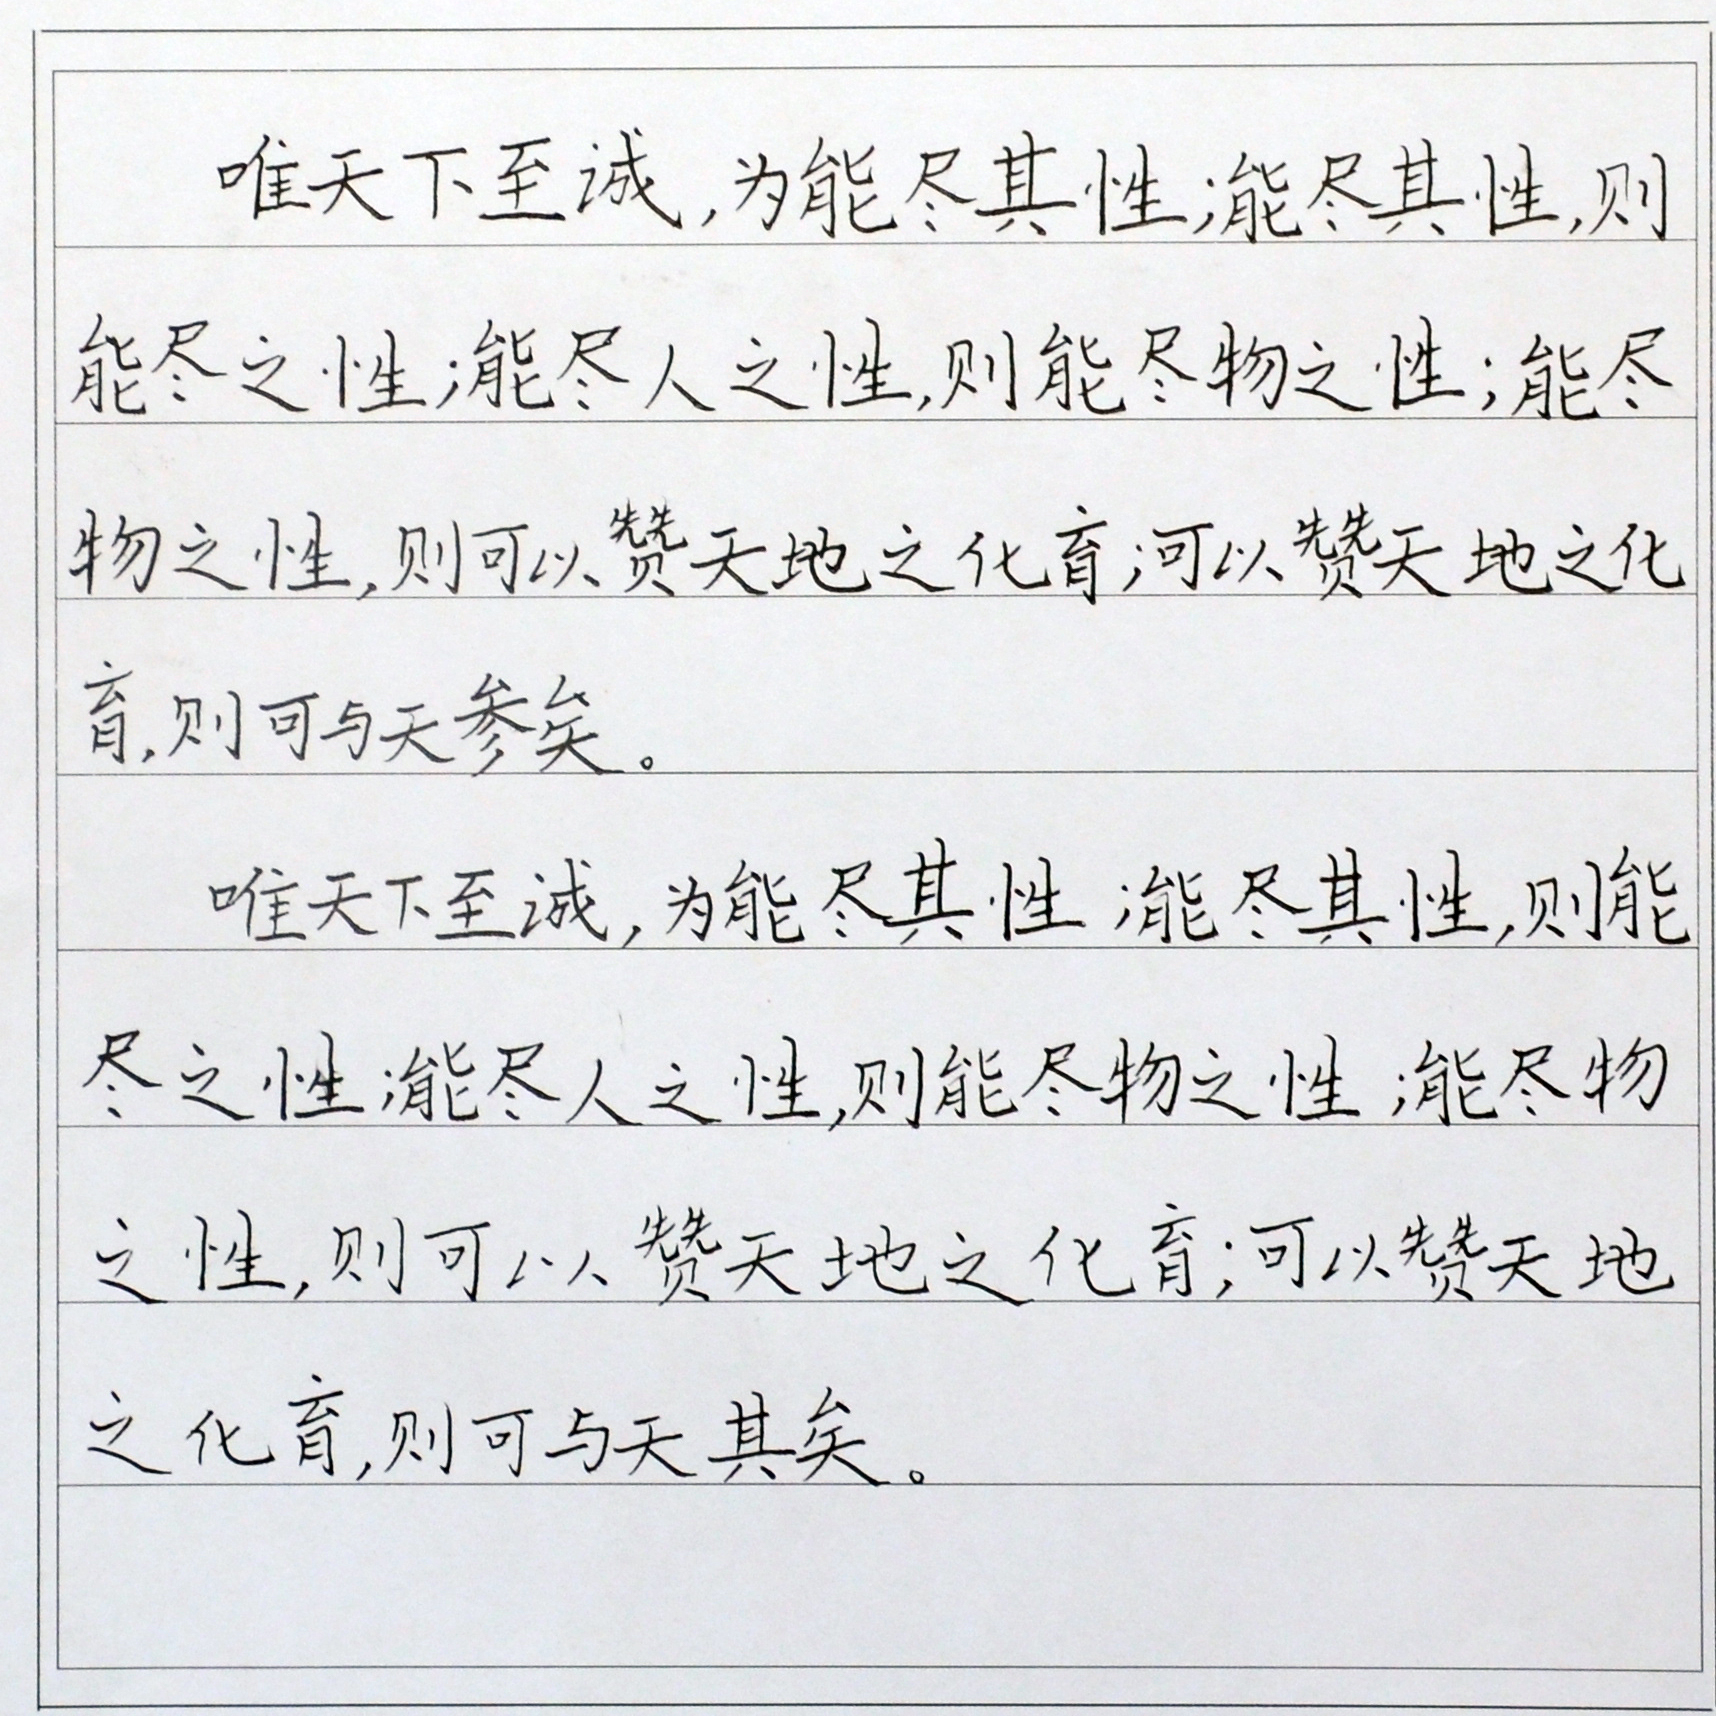 唯天下至诚,为能尽其性;能尽其性,则
能尽之性;能尽人之性,则能尽物之性;能尽
物之性,则可以赞天地之化育;可以赞天地之化
育,则可与天参矣。
唯天下至诚,为能尽其性;能尽其性,则能
尽之性;能尽人之性,则能尽物之性;能尽物
之性,则可以赞天地之化育;可以赞天地
之化育,则可与天其矣。